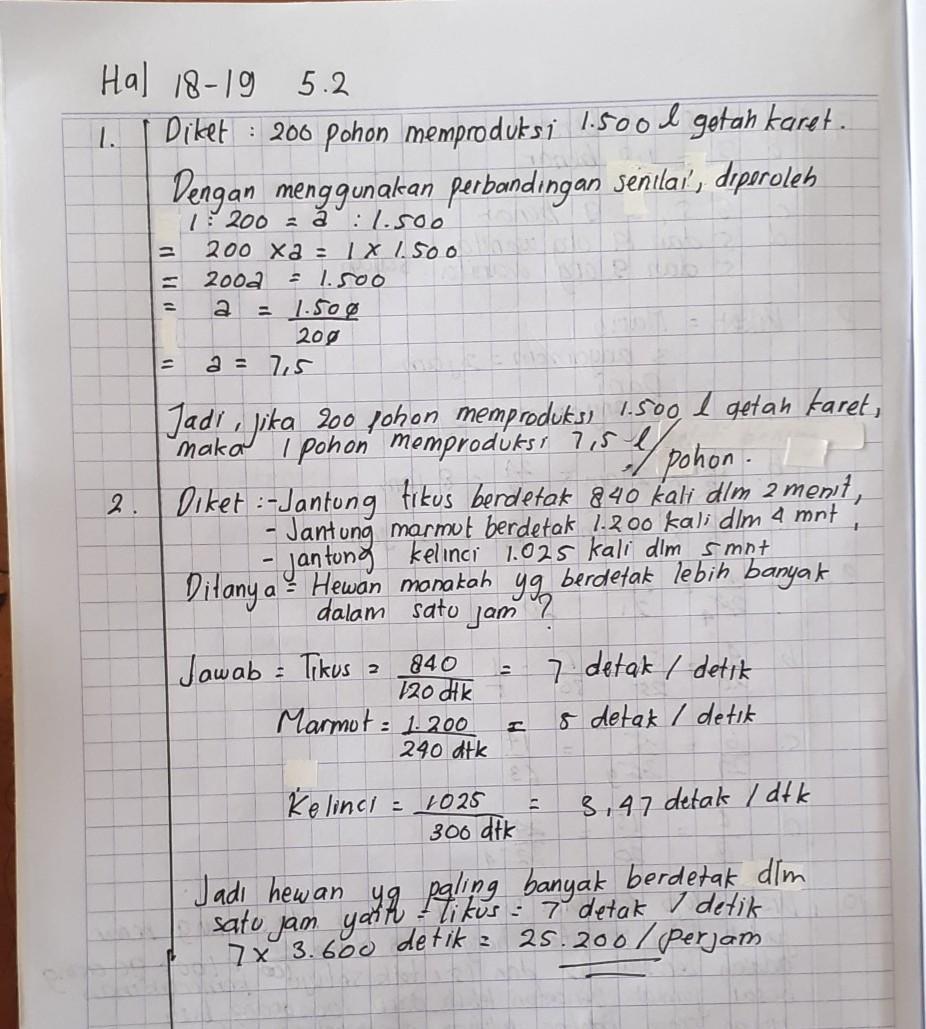 Hal 18-19 5.2
1. Diket : 200 pohon memproduksi 1.500 l getah karet.
Dengan menggunakan perbandingan senilai, diperoleh
1 : 200 = a : 1.500
= 200 x a = 1 x 1.500
= 200a = 1.500
= a = 1.500
200
= a = 7,5
Jadi, jika 200 pohon memproduksi 1.500 l getah karet,
maka 1 pohon memproduksi 7,5 l/
pohon.
2. Diket :- Jantung tikus berdetak 840 kali dlm 2 menit,
- Jantung marmut berdetak 1.200 kali dlm 4 mnt,
- jantung kelinci 1.025 kali dlm 5 mnt
Ditanya = Hewan manakah yg berdetak lebih banyak
dalam satu jam ?
Jawab = Tikus = 840 = 7 detak / detik
120 dtk
Marmut = 1.200 = 5 detak / detik
240 dtk
Kelinci = 1025 = 3,47 detak / dtk
300 dtk
Jadi hewan yg paling banyak berdetak dlm
satu jam yaitu = tikus = 7 detak / detik
7 x 3.600 detik = 25.200 / perjam